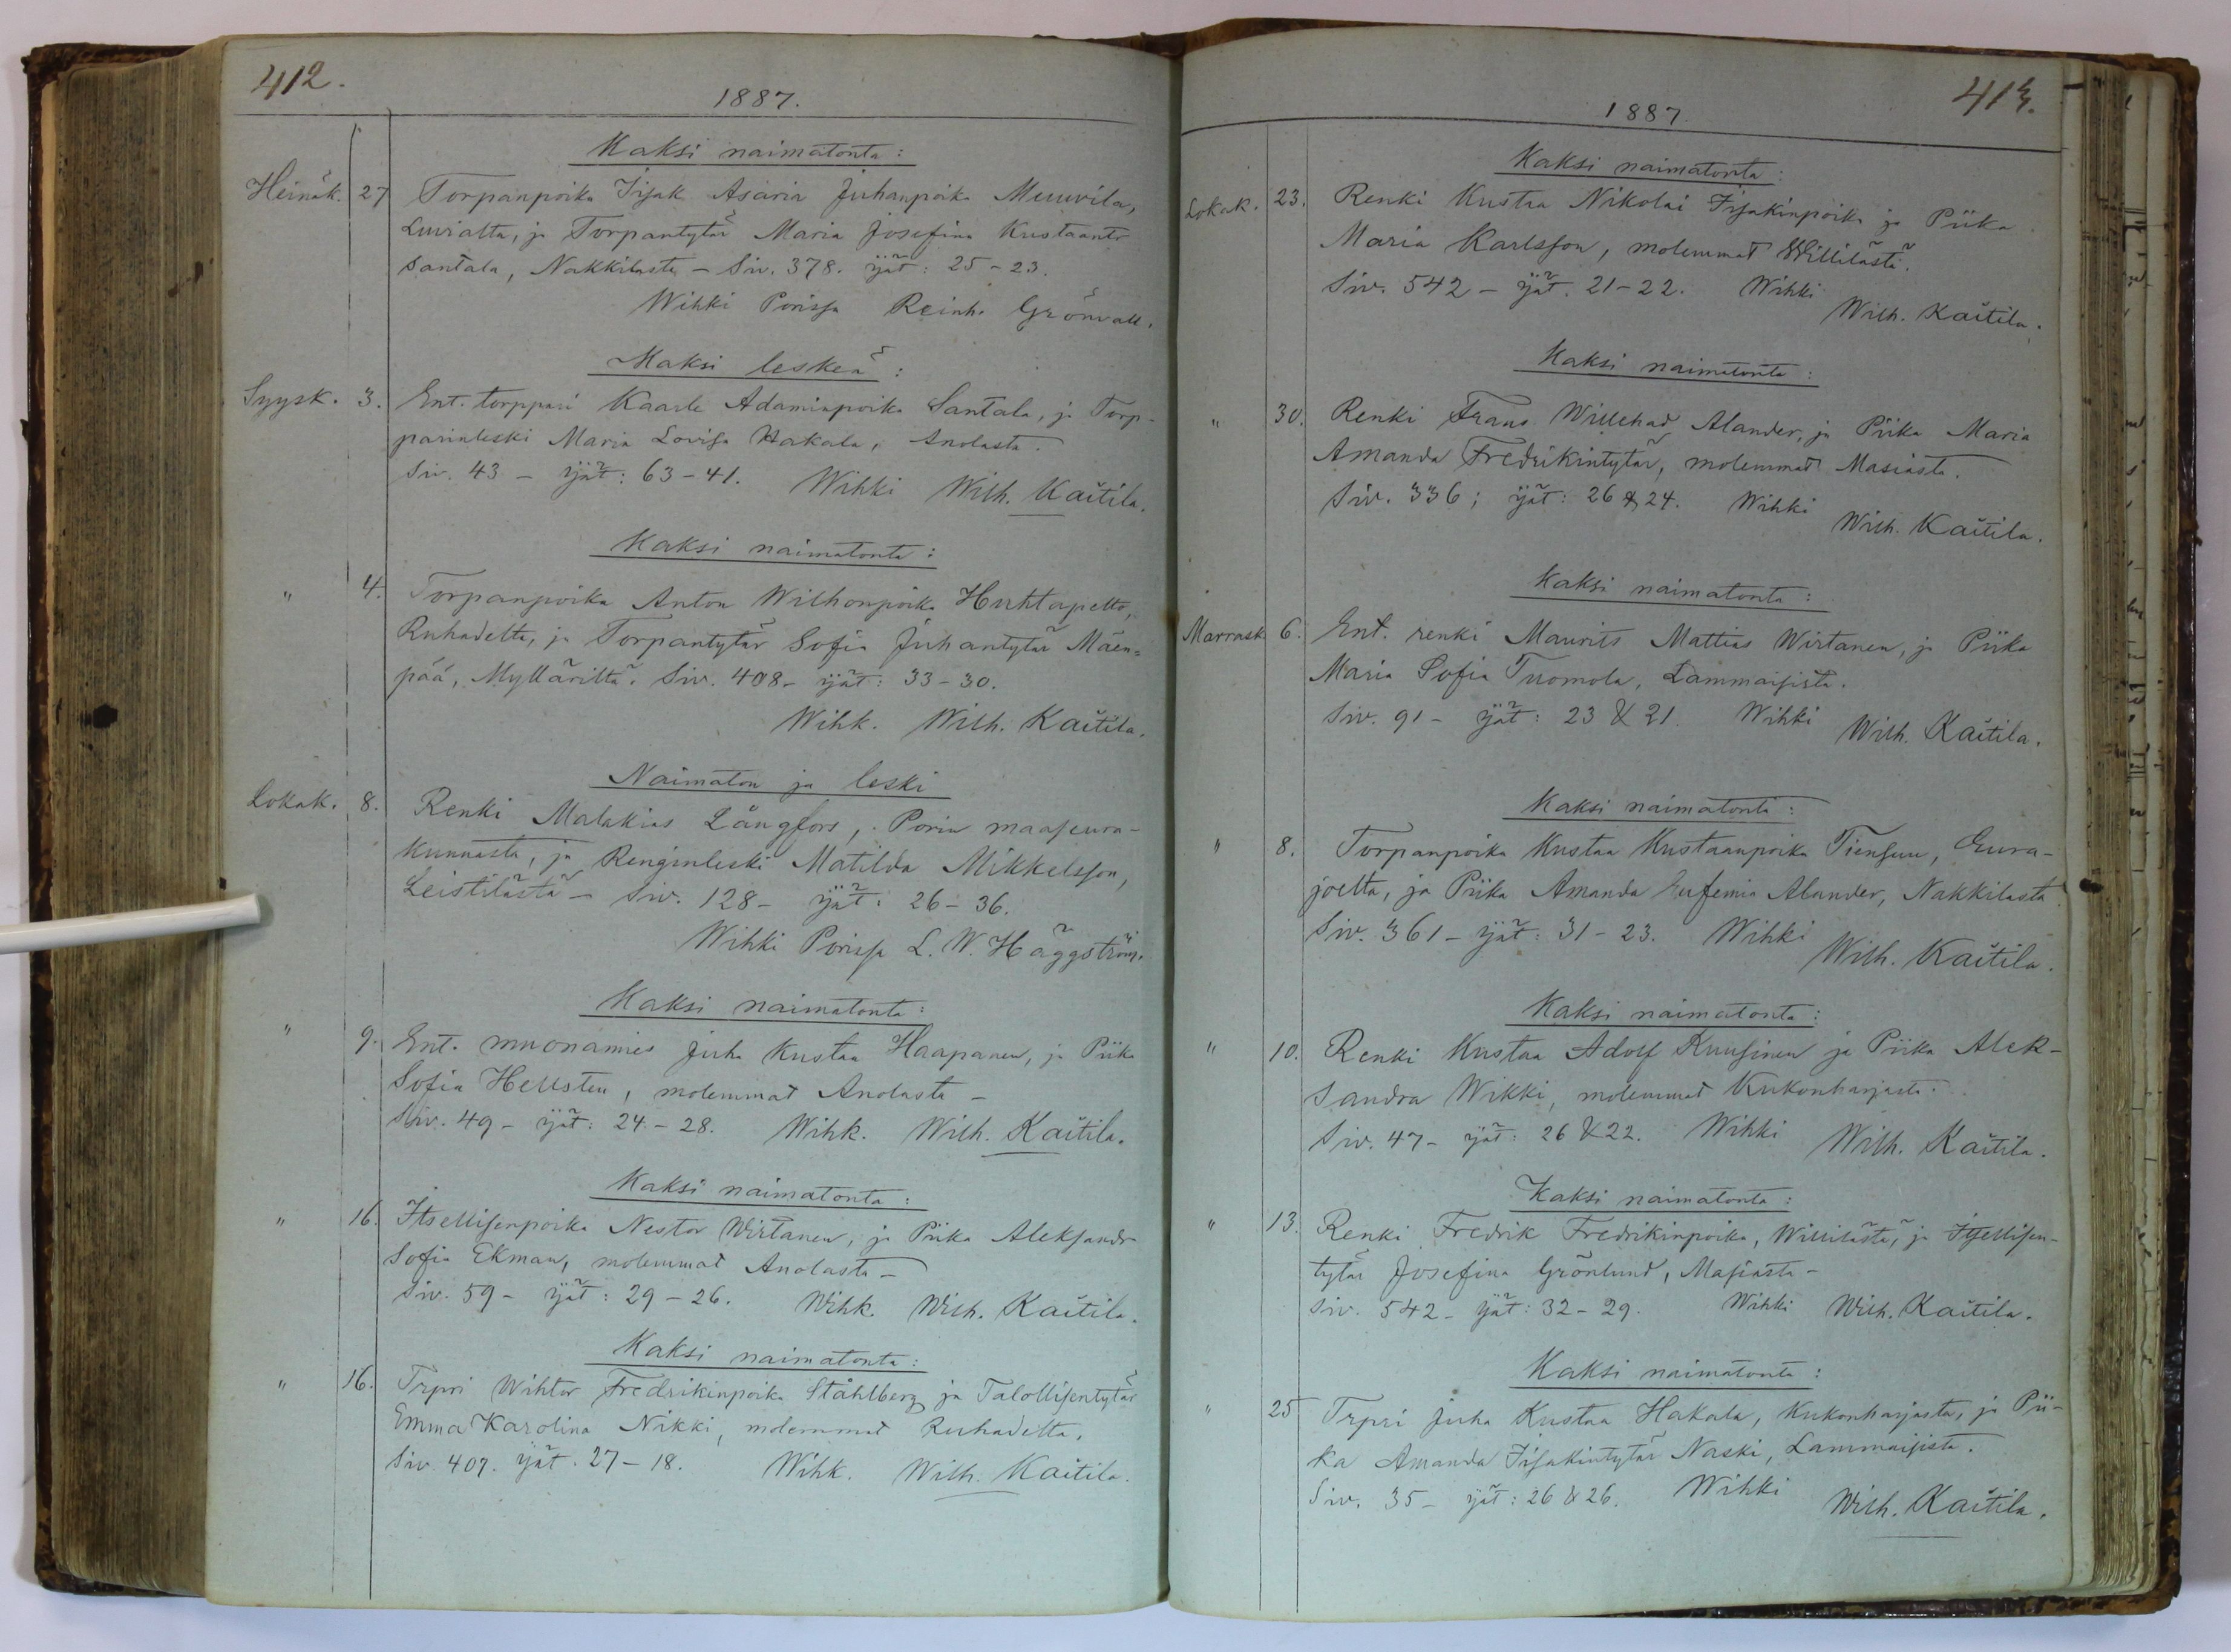 412.
1887.
Kaksi naimatonta:
Heinäk. 27 Torpanpoika Iisak Asaria Juhanpoika Muuvila,
Luvialta, ja Torpantytär Maria Josefina Kustaant.
Santala, Nakkilasta – Siv. 378. ijät: 25 – 23.
Wihki Porissa Reinh. Grönvall.
Kaksi leskeä:
Syysk. 3. Ent. torppari Kaarle Adaminpoika Santala, ja Torp-
parinleski Maria Lovisa Hakala, Anolasta.
Siv. 43 – ijät: 63 – 41. Wihki Wilh. Kaitila.
Kaksi naimatonta:
" 4. Torpanpoika Anton Wilhonpoika Huhtapelto,
Ruhadelta, ja Torpantytär Sofia Juhantytär Mäen-
pää, Mylläriltä. Siv. 408 – ijät: 33 – 30.
Wihk. Wilh. Kaitila.
Naimaton ja leski
Lokak. 8. Renki Malakias Långfors, Porin maaseura-
kunnasta, ja Renginleski Matilda Mikkelsson,
Leistilästä – Siv. 128 – ijät: 26 – 36.
Wihki Porissa L. W. Häggström.
Kaksi naimatonta:
" 9. Ent. muonamies Juha Kustaa Haapanen, ja Piika
Sofia Hellsten, molemmat Anolasta –
Siv. 49 – ijät: 24 – 28. Wihk. Wilh. Kaitila.
Kaksi naimatonta:
" 16. Itsellisenpoika Nestor Wirtanen, ja Piika Aleksandr
Sofia Ekman, molemmat Anolasta –
Siv. 59 – ijät: 29 – 26. Wihk. Wilh. Kaitila.
Kaksi naimatonta:
" 16. Trpri Wihtor Fredrikinpoika Ståhlberg ja Talollisentytär
Emma Karolina Nikki, molemmat Ruhadelta.
Siv. 407. ijät. 27 – 18. Wihk. Wilh. Kaitila.
413.
1887.
Kaksi naimatonta:
Lokak. 23. Renki Kustaa Nikolai Iisakinpoika ja Piika
Maria Karlsson, molemmat Willilästä.
Siv. 542 – ijät. 21 – 22. Wihki
Wilh. Kaitila.
Kaksi naimatonta:
" 30. Renki Frans Willehad Alander, ja Piika Maria
Amanda Fredrikintytär, molemmat Masiasta.
Siv. 336; ijät: 26 & 24. Wihki
Wilh. Kaitila.
Kaksi naimatonta:
Marrask. 6. Ent. renki Maurits Mattias Wirtanen, ja Piika
Maria Sofia Tuomola, Lammaisista.
Siv. 91 – ijät: 23 & 21. Wihki
Wilh. Kaitila.
Kaksi naimatonta:
" 8. Torpanpoika Kustaa Kustaanpoika Tiensuu, Eura-
joelta, ja Piika Amanda Eufemia Alander, Nakkilasta.
Siv. 361 – ijät: 31 – 23. Wihki
Wilh. Kaitila.
Kaksi naimatonta:
" 10. Renki Kustaa Adolf Ruusinen ja Piika Alek-
sandra Wikki, molemmat Kukonharjasta.
Siv. 47 – ijät: 26 & 22. Wihki
Wilh. Kaitila.
Kaksi naimatonta:
" 13. Renki Fredrik Fredrikinpoika, Willilästä, ja Itsellisen-
tytär Josefina Grönlund, Masiasta –
Siv. 542 – ijät: 32 – 29. Wihki Wilh. Kaitila.
Kaksi naimatonta:
" 25 Trpri Juha Kustaa Hakala, Kukonharjasta, ja Pii-
ka Amanda Iisakintytär Naski, Lammaisista.
Siv. 35 – ijät: 26 & 26. Wihki
Wilh. Kaitila.